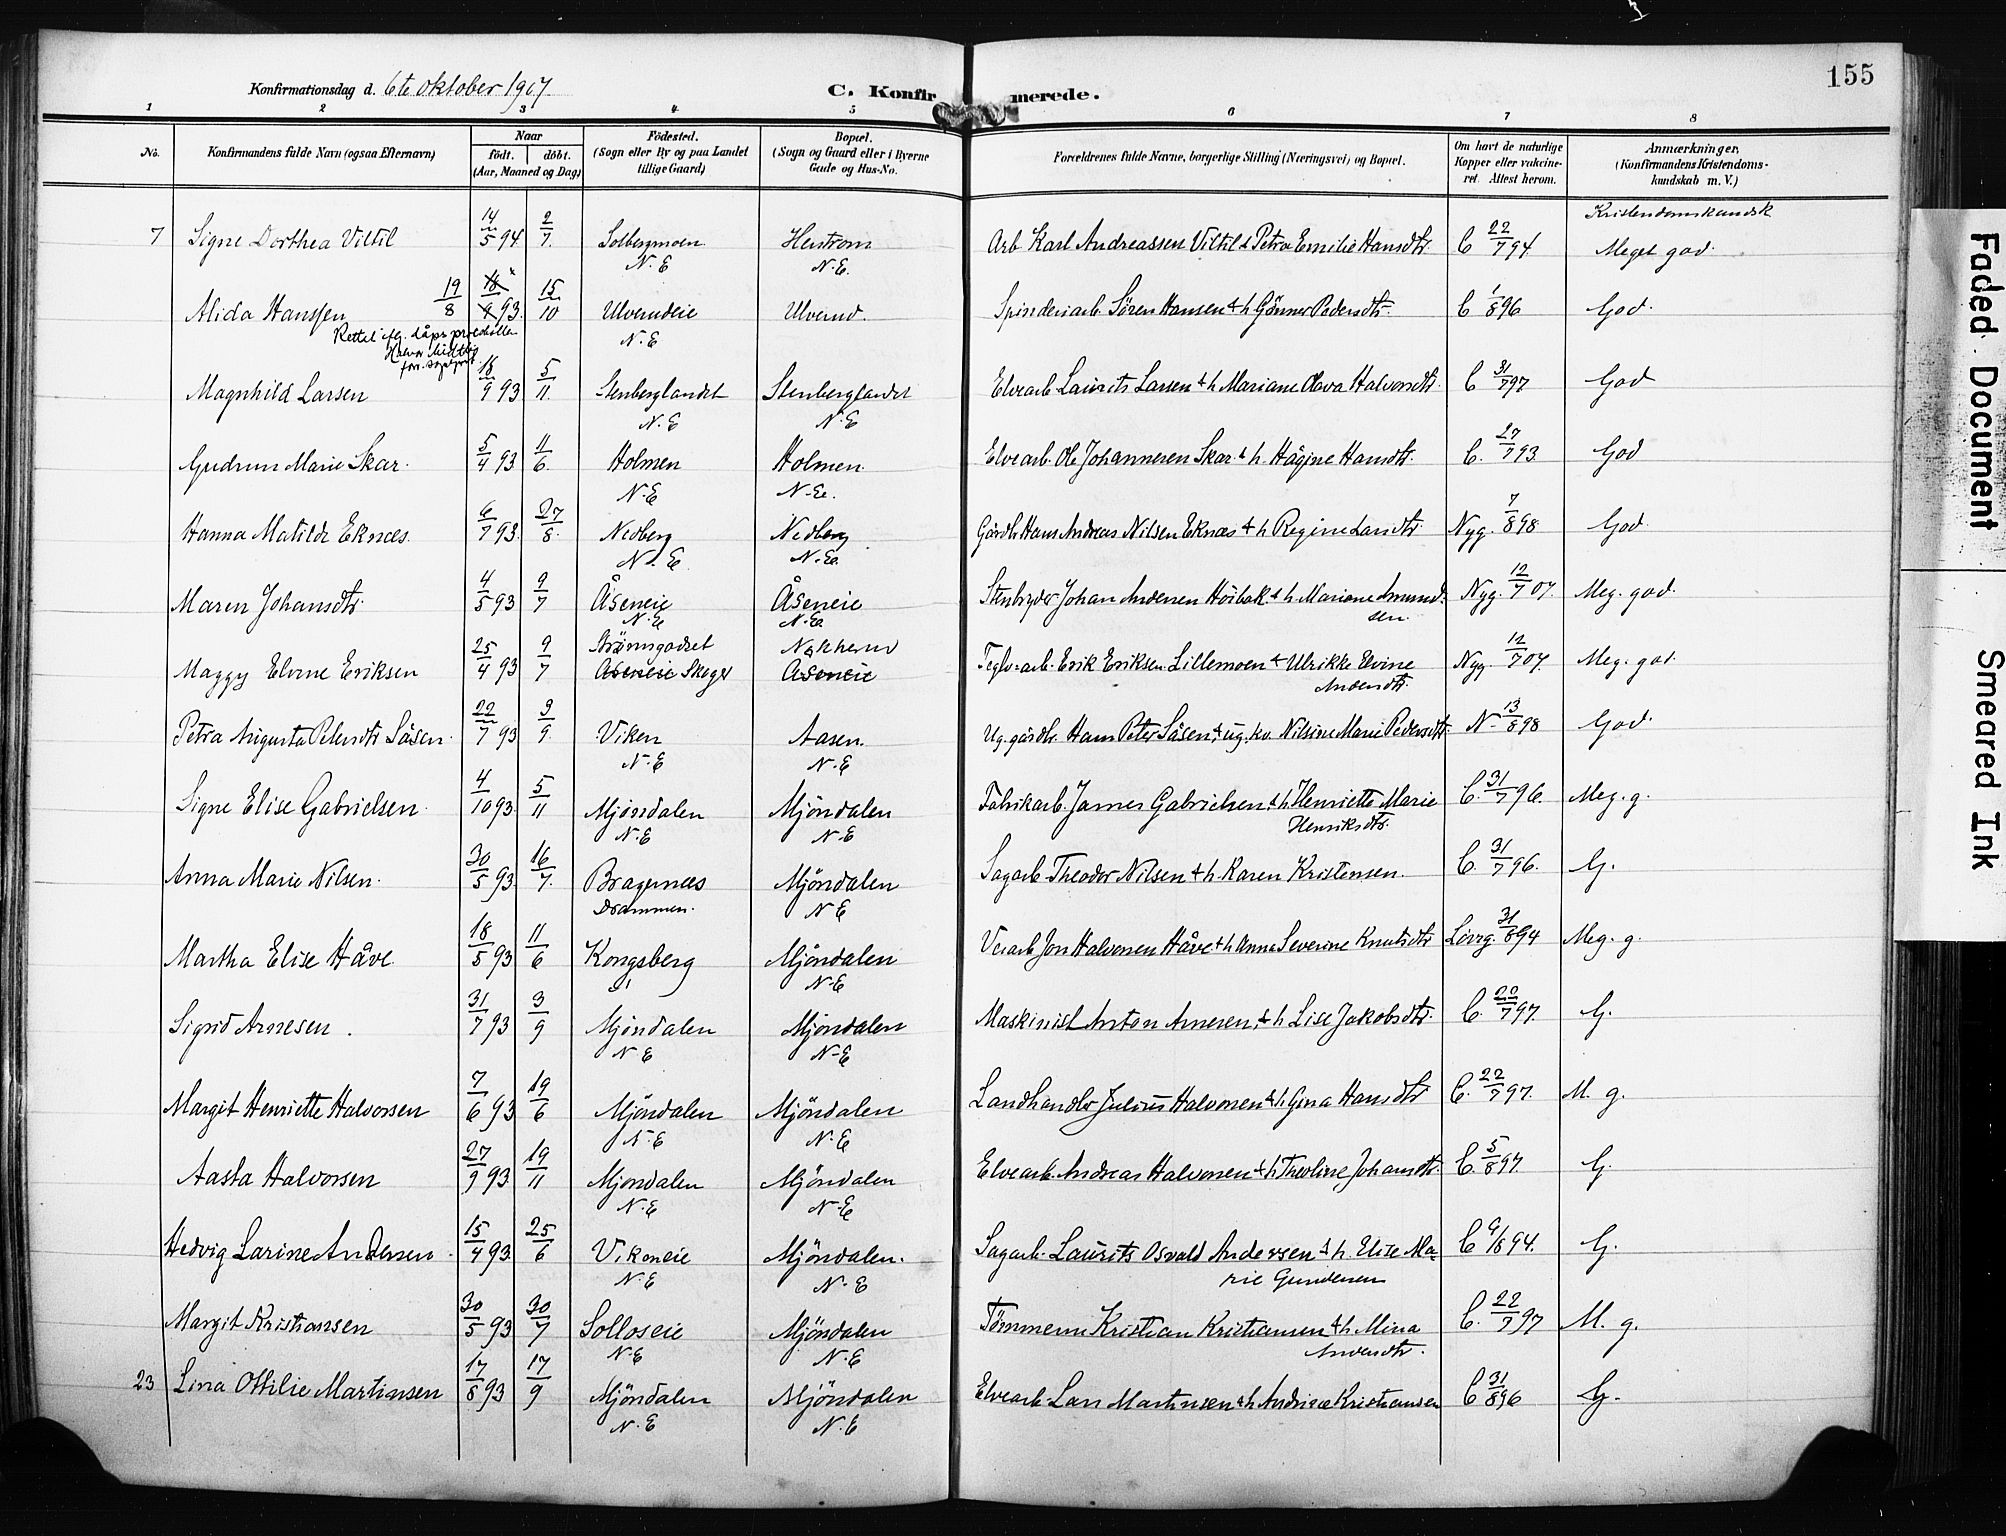 155
Konfirmationsdag d. 6te Oktober 1907.
C. Konfirmerede.
1 2 3 4 5 6 7 8
No.
Konfirmandens fulde Navn (ogsaa Efternavn)
Naar
födt. döbt.
(Aar, Maaned og Dag)
Födested.
(Sogn eller By og paa Landet
tillige Gaard)
Bopæl.
(Sogn og Gaard eller i Byerne
Gade og Hus-No.
Forældrenes fulde Navne, borgerlige Stilling (Næringsvei) og Bopæl.
Om havt de naturlige
Kopper eller vakcine-
ret. Attest herom.
Anmærkninger,
(Konfirmandens Kristendoms-
kundskab m. V.)
Kristendomskundsk
7 Signe Dorthea Viltil 14/5 94 2/7. Solbergmoen Herstrom Arb Karl Andreassen Viltil & Petra Emilie Hansdtr. C 22/7 94. Meget god.
N. E N. E.
Alida Hanssen 19/8 93. 15/10 Ulverudeie Ulverud. Spinderiarb. Sören Hansen & h Gönner Pedersdtr. C 1/8 96 God.
Rettet ifg. dåps protokollen N. E
Magnhild Larsen 18/9 93 5/11. Stenberglandet Stenberglandet Elvearb Laurits Larsen & h Mariane Olava Halvorsdtr. C 31/7 97 God
N. E N. E
Gudrun Marie Skar. 5/4 93 11/6. Holmen Holmen. Elvearb. Ole Johannesen Skar & h. Hågine Hansdtr. C. 27/7 93 God
N. E N. E.
Hanna Matilde Eknæs. 6/7 93. 27/8. Nedberg Nedberg Gårdbr Hans Andreas Nilsen Eknæs & h Regine Larsdtr Nyg. 7/8 98 God.
N. E. N. E.
Maren Johansdtr. 4/5 93 9/7 Åseneie Åseneie Stenhugger Johan Andersen Hörbak & h. Mariane Amund- Nyg. 12/7 07. Meg. god.
N. E N. E. sen.
Strömsgodset Nøkherud
Maggy Elvine Eriksen 25/4 93 9/7 Aseneie Skoger Aseneie Teglv.arb. Erik Eriksen Lillemoen & Ulrikke Elvine Nyg. 12/7 07 Meg. god.
Andersdtr.
Petra Augusta Petersdtr Såsen. 22/7 93 3/9. Viken Aasen. Ug. gårdbr. Hans Peter Såsen, & ug. kv. Nilsine Marie Pedersdtr. N- 13/8 98 God.
N. E N. E
Signe Elise Gabrielsen. 4/10 93. 5/11 Mjöndalen Mjöndalen Fabrikarb. James Gabrielsen, & h Henriette Marie C. 31/7 96. Meg. g.
N. E N. E Henriksdtr.
Anna Marie Nilsen. 30/5 93. 16/7. Bragernæs Mjöndalen Sagarb. Theodor Nilsen & h. Karen Kristensen. C. 31/7 96. G.
Drammen. N E
Martha Elise Håve. 18/5 93 11/6 Kongsberg Mjöndalen Verarb Jon Halvorsen Håve & h Anna Severine Knutsdtr Lövrg. 31/8 94 Meg. g.
N. E
Sigrid Arnesen. 31/7 93 3/9 Mjöndalen Mjöndalen Maskinist Anton Arnesen, & h Lise Jakobsdtr. C. 22/7 97. G.
N E N-E
Margit Henriette Halvorsen 7/6 93 19/6 Mjöndalen Mjöndalen Landhandler Julius Halvorsen & h. Gina Hansdtr C. 22/7 97. M. g.
N. E N. E
Aasta Halvorsen 27/9 93 19/11 Mjondalen Mjöndalen Elvearb. Andreas Halvorsen & h Theoline Johansdtr. C. 5/8 97. G.
N. E N. E
Hedvig Larine Andersen. 15/4 93 25/6 Vikeneie Mjöndalen. Sagarb. Laurits Osvald Andersen & h. Elise Ma- C 9/8 94. G.
N. E N. E rie Gundersen
Margit Kristiansen 30/5 93 30/7 Solloseie Mjöndalen Tömmerm Kristian Kristiansen & h. Mina C. 22/7 97 M. g.
N. E N. E Andersdtr.
23 Lina Ottilie Martinsen 17/8 93 17/9 Mjöndalen Mjöndalen Elvearb Lars Martinsen & h Andrine Kristiansen C 31/8 96 G.
N. E N. E
Faded Document
Smeared Ink